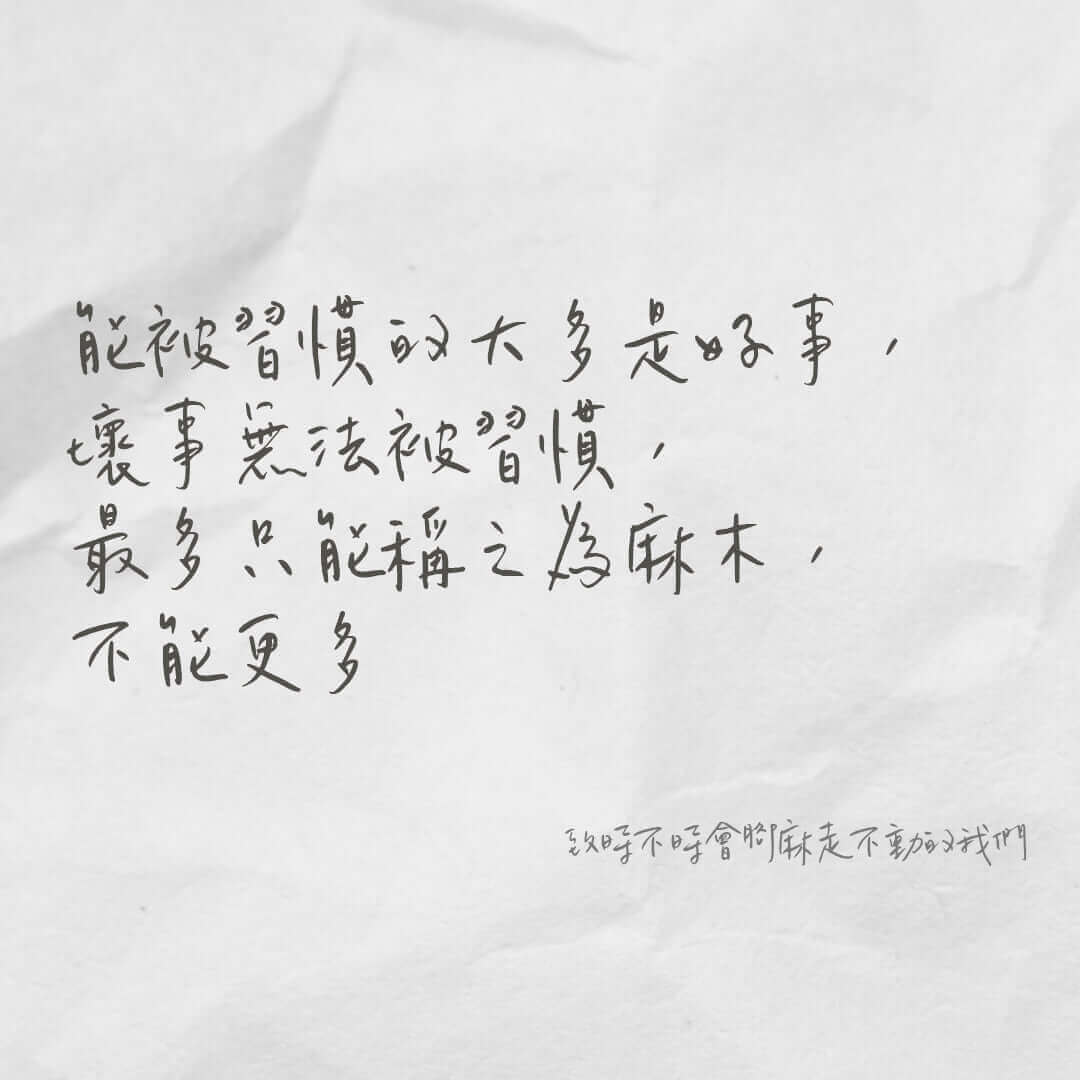 能被習慣的大多是好事，
壞事無法被習慣，
最多只能稱之為麻木，
不能更多
致時不時會腳麻走不動的我們